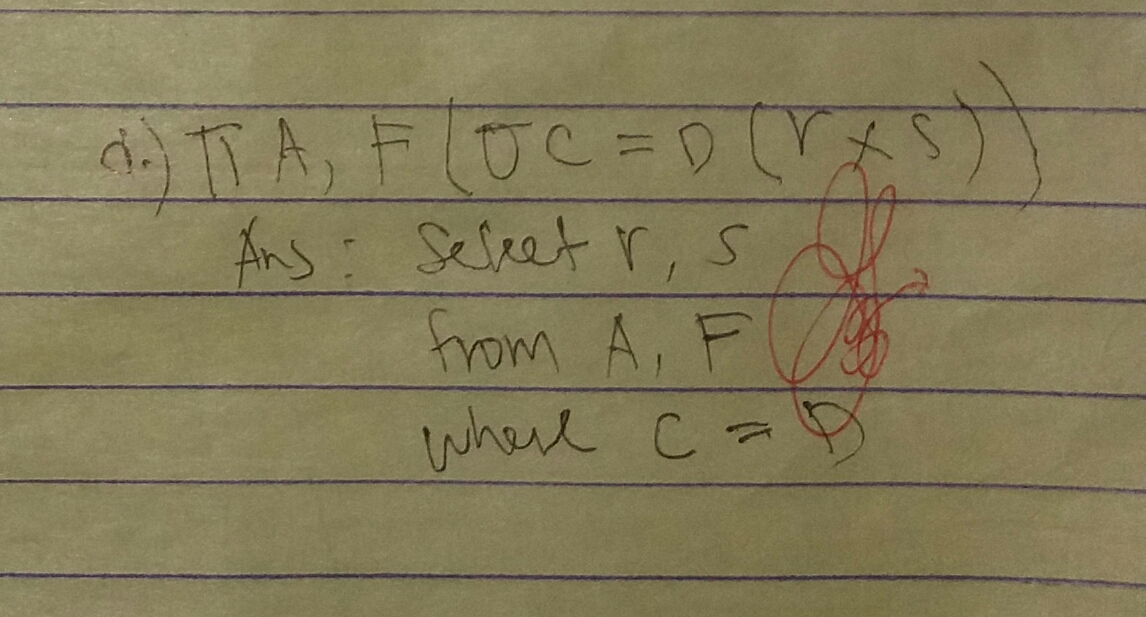 d.) Π A, F (σ C = D (r × s))
Ans: Select r, s
from A, F
where C = D